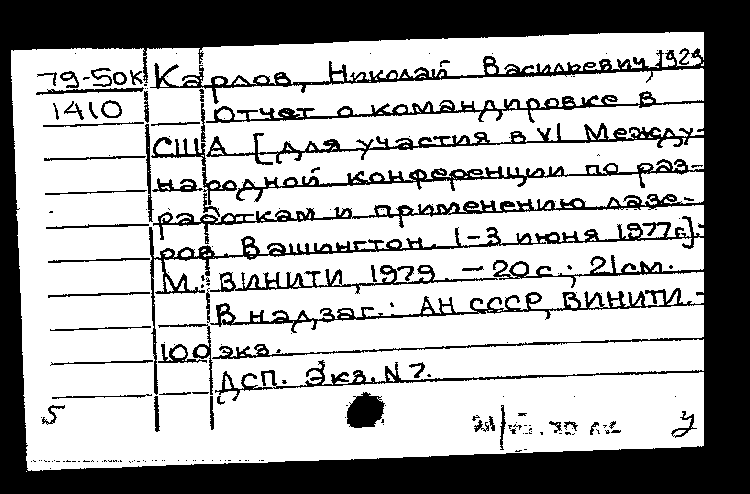 79-50к Карлов, Николай Васильевич, 1929
1410 Отчет о командировке в
США [для участия в VI Между-
народной конференции по раз-
работкам и применению лазе-
ров. Вашингтон. 1-3 июня 1977г.].-
М.: ВИНИТИ, 1979. - 20 с.; 21 см.
В надзаг.: АН СССР, ВИНИТИ. -
100 экз.
ДСП. Экз. N 7.
5 У